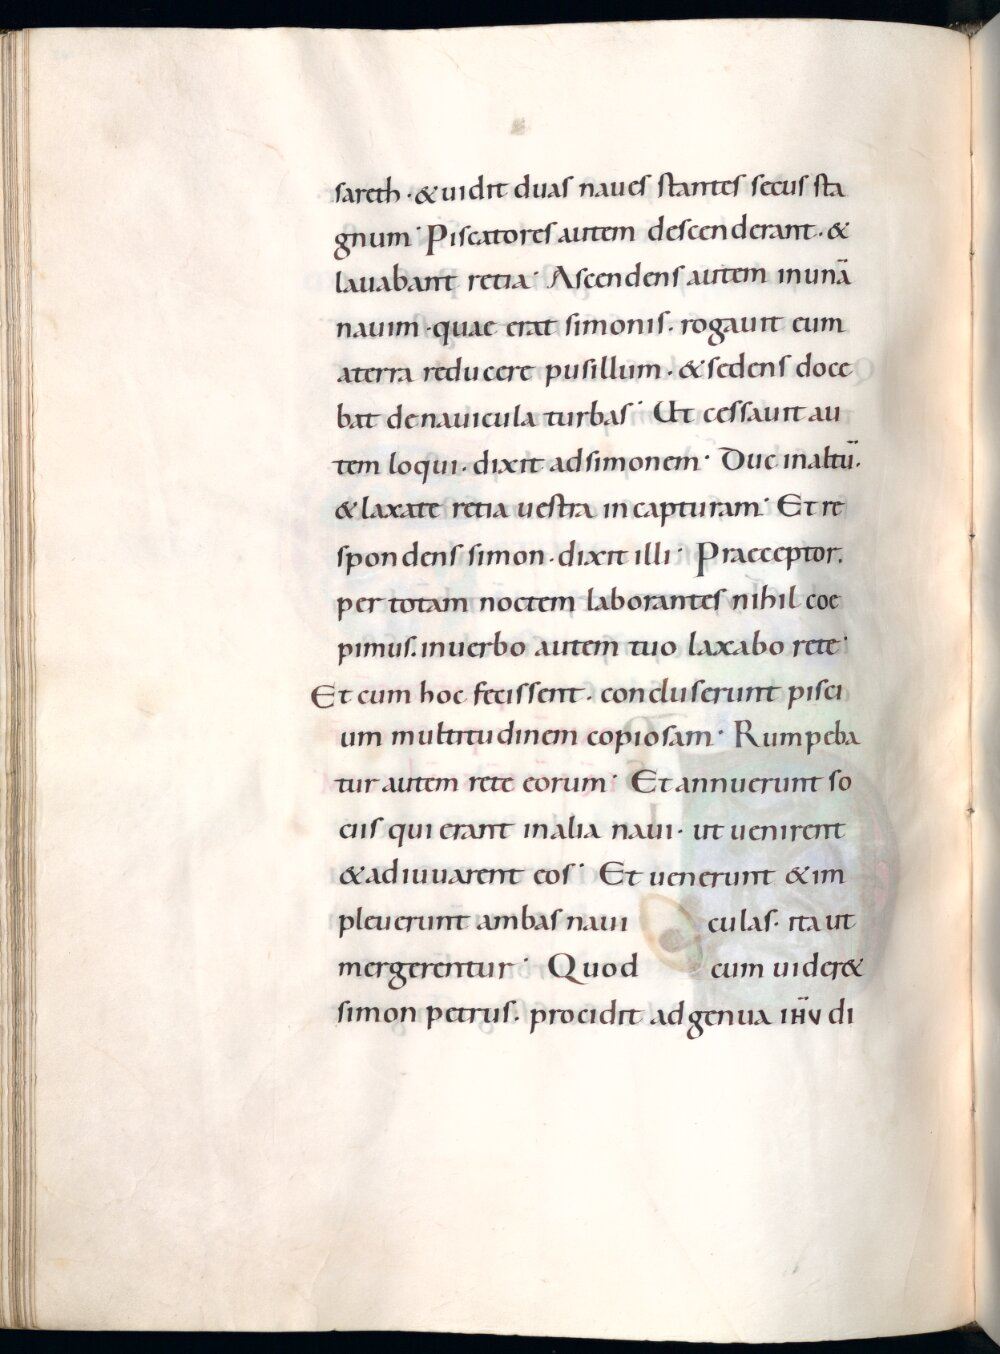 sareth · & uidit duas naues stantes secus sta
gnum · Piscatores autem descenderant · &
lauabant retia · Ascendens autem in unā
nauim · quae erat simonis · rogauit eum
a terra reducere pusillum · & sedens doce
bat de nauicula turbas · Ut cessauit au
tem loqui · dixit ad simonem · Duc in altū ·
& laxate retia uestra in capturam · Et re
spondens simon · dixit illi · Praeceptor ·
per totam noctem laborantes nihil coe
pimus · in uerbo autem tuo laxabo rete ·
Et cum hoc fecissent · concluserunt pisci
um multitudinem copiosam · Rumpeba
tur autem rete eorum · Et annuerunt so
ciis qui erant in alia naui · ut uenirent
& adiuuarent eos · Et uenerunt & im
pleuerunt ambas naui culas · ita ut
mergerentur · Quod cum uider&
simon petrus · procidit ad genua ihū di